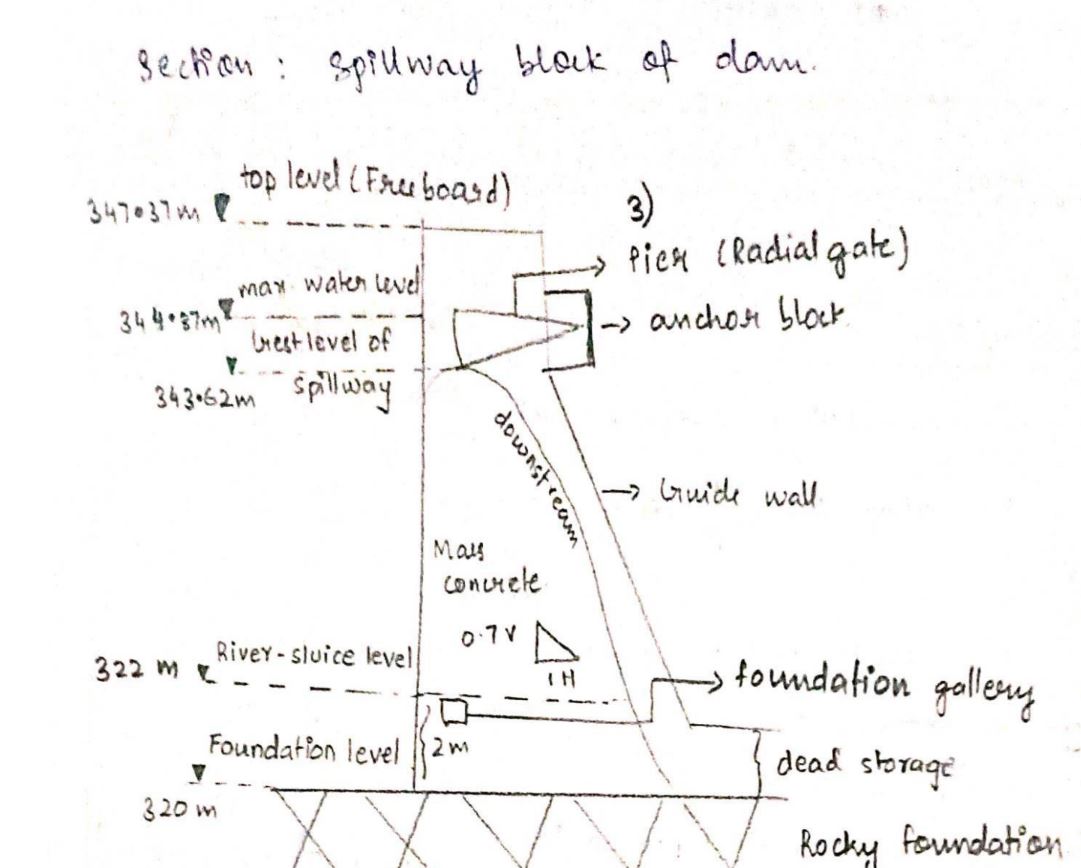 Section : Spillway block of dam.
top level (Freeboard)
347.37m
3)
Pier (Radial gate)
max. water level
344.37m
anchor block
Crest level of
spillway
343.62m
downstream
Guide wall
Mass
concrete
0.7 V
1 H
River-sluice level
322 m
foundation gallery
Foundation level
2m
dead storage
320 m
Rocky foundation